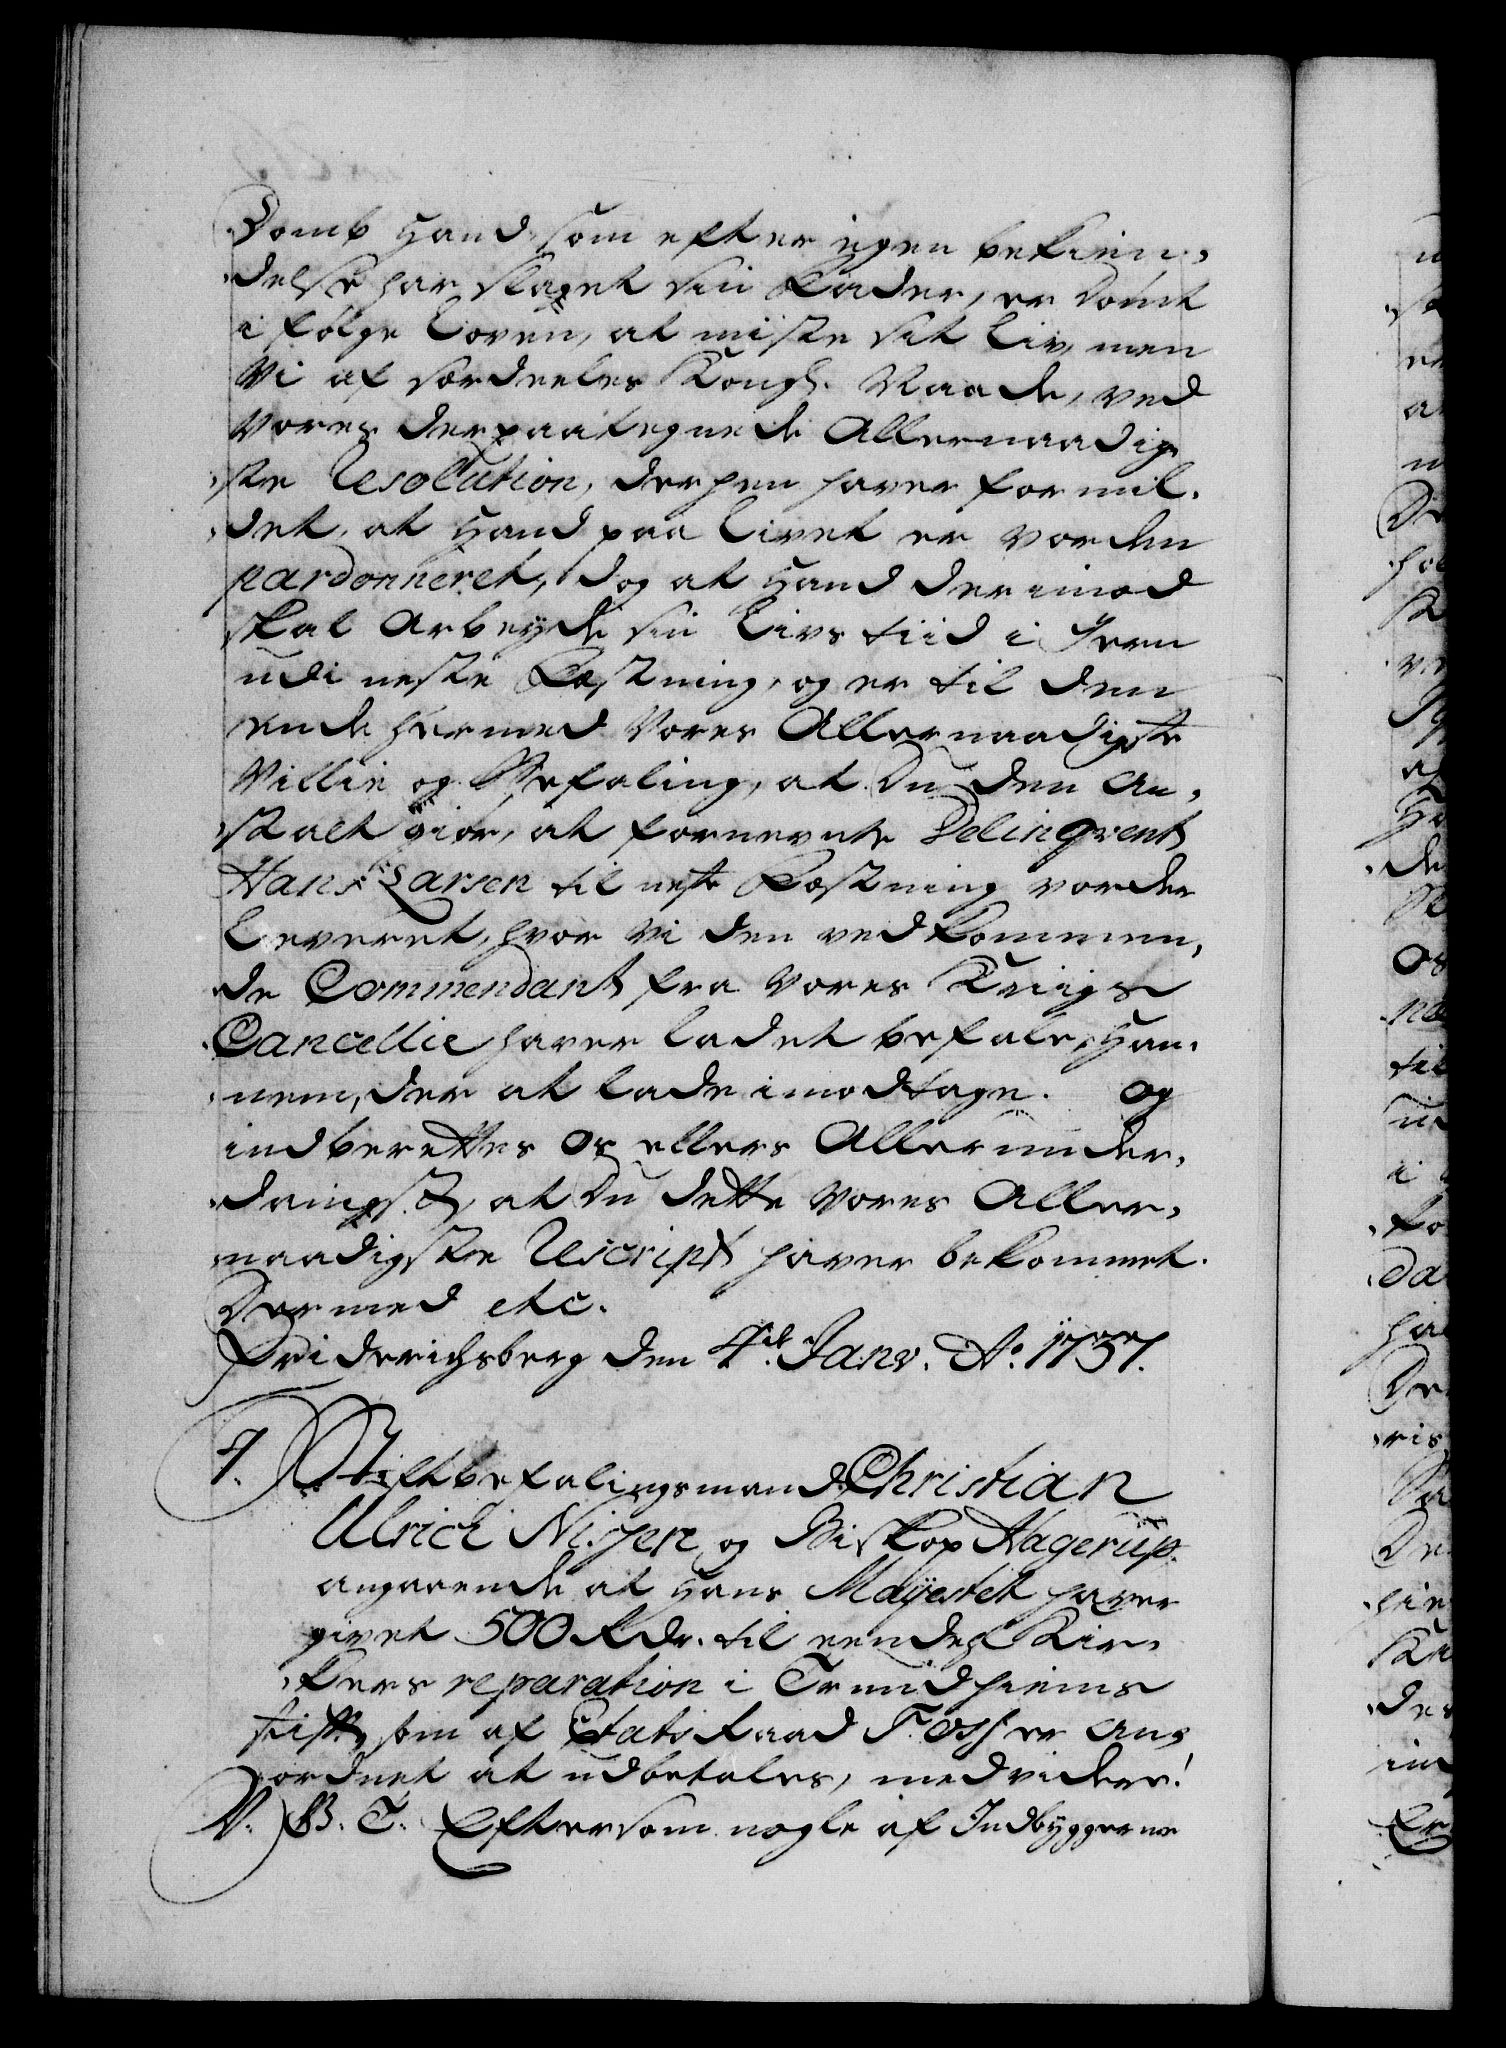 Domb hand som efter egen bekien-
delse har slaget sin Fader, er Dømt
i følge Loven, at miste sit Liv, men
Vi af særdeeles Kongl. Naade, ved
Vores derpaategnede Allernaadig-
ste Resolution, derhen haver formil-
det, at hand paa Livet er vorden
pardonneret, dog at hand derimod
skal Arbeyde sin Livs tiid i Jern
udi neste Fæstning, og er til den
ende hermed Vores Allernaadigste
Villie og Befaling, at Du den An-
stalt giør, at fornevnte Delinqvent
Hans Larsen til neste Fæstning vorder
Leveret, hvor Vi den vedkommen-
de Commendant fra Vores Kriigs
Cancellie haver ladet befale, han-
nem, der at lade imodtage. Og
indberettes Os ellers Allerunder-
danigst, at Du dette Vores Aller-
naadigste Rescript haver bekommet.
Dermed etc.
Friderichsberg den 4de Janv. Ao. 1737.
7. Stiftbefalingsmand Christian
Ulrich Nissen og Biskop Hagerup.
angaaende at Hans Mayestet haver
givet 500 Rdr. til eendeel Kir-
kers reparation i Trundhiems
stift, som af Etats Raad Foss er an-
ordnet at udbetales, med videre.
V. G. T. Eftersom nogle af Indbyggerne